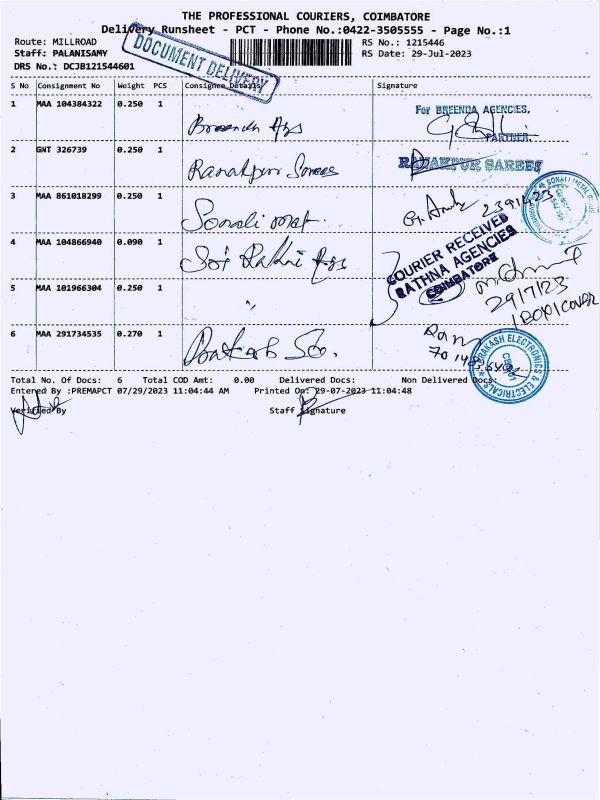 THE PROFESSIONAL COURIERS, COIMBATORE
Delivery Runsheet - PCT - Phone No.:0422-3505555 - Page No.:1
Route: MILLROAD
RS No.: 1215446
Staff: PALANISAMY
RS Date: 29-Jul-2023
DRS No.: DCJB121544601
DOCUMENT DELIVERY
S No Consignment No Weight PCS Consignee Details Signature
1 MAA 104384322 0.250 1
For BREENDA AGENCIES,
PARTNER.
2 GNT 326739 0.250 1
RANAKPUR SAREES
3 MAA 861018299 0.250 1 Sonali
SONALI METAL
4 MAA 104866940 0.090 1 Sri Rathi Ags
COURIER RECEIVED
RATHNA AGENCIES
COIMBATORE
5 MAA 101966304 0.250 1 "
29/7/23
1 BOX/COVER
6 MAA 291734535 0.270 1
PRAKASH ELECTRONICS & ELECTRICALS
Total No. Of Docs: 6 Total COD Amt: 0.00 Delivered Docs: Non Delivered Docs:
Entered By :PREMAPCT 07/29/2023 11:04:44 AM Printed On: 29-07-2023 11:04:48
Verified By Staff Signature